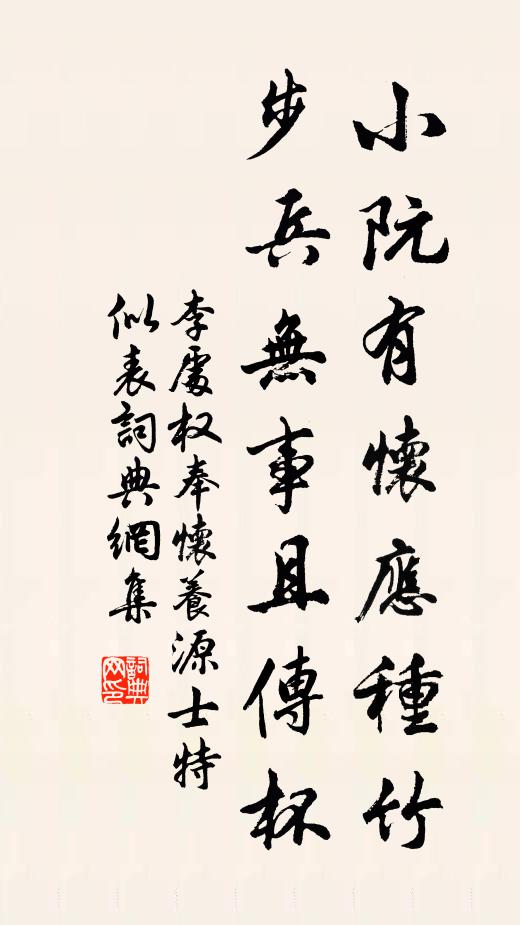 小阮有懷應種竹
步兵無事且傳杯
李處权奉懷養源士特
似表詞典網集
詞典网印